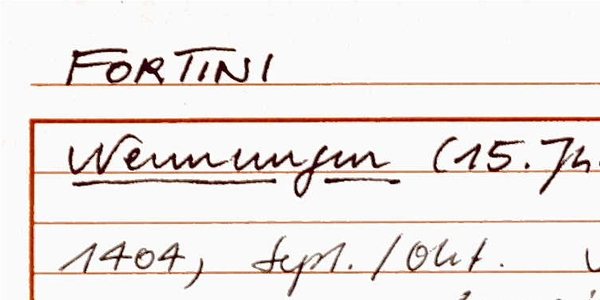 FORTINI
Wennungen (15. Jh.
1404, Sept./Okt.